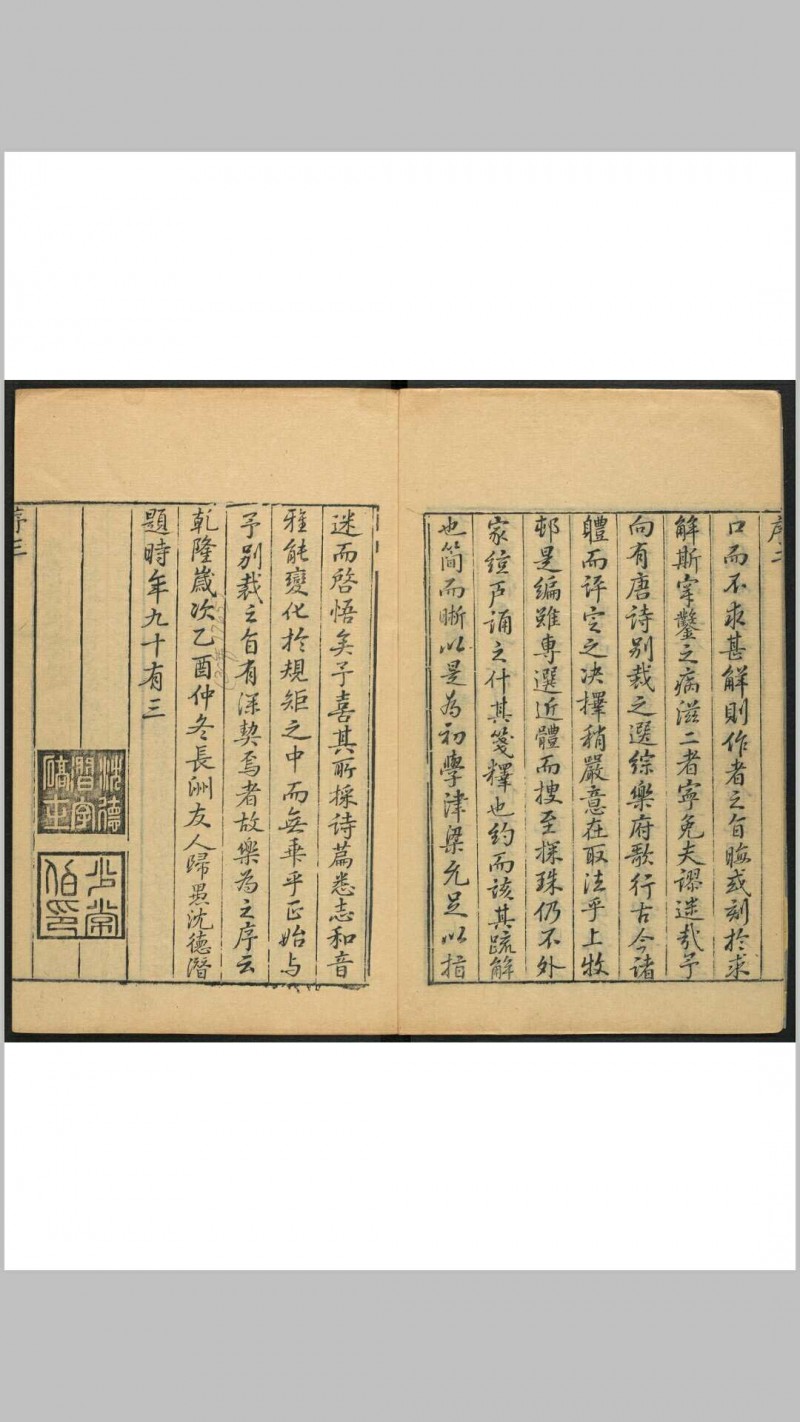 序二
口而不求甚解則作者之旨晦或刻於求
解斯穿鑿之病滋二者寧免夫謬迷哉予
向有唐詩別裁之選綜樂府歌行古今諸
體而評定之决擇稍嚴意在取法乎上牧
邨是編雖專選近體而搜至探珠仍不外
家絃戶誦之什其箋釋也約而該其䟽解
也簡而晰以是為初學津梁允足以指
迷而啓悟矣予喜其所採诗篇悉志和音
雅能變化於規矩之中而無乖乎正始与
予別裁之旨有深契焉者故樂為之序云
乾隆歲次乙酉仲冬長洲友人歸愚沈德潛
題時年九十有三
序三
沈德
潛字
碻士